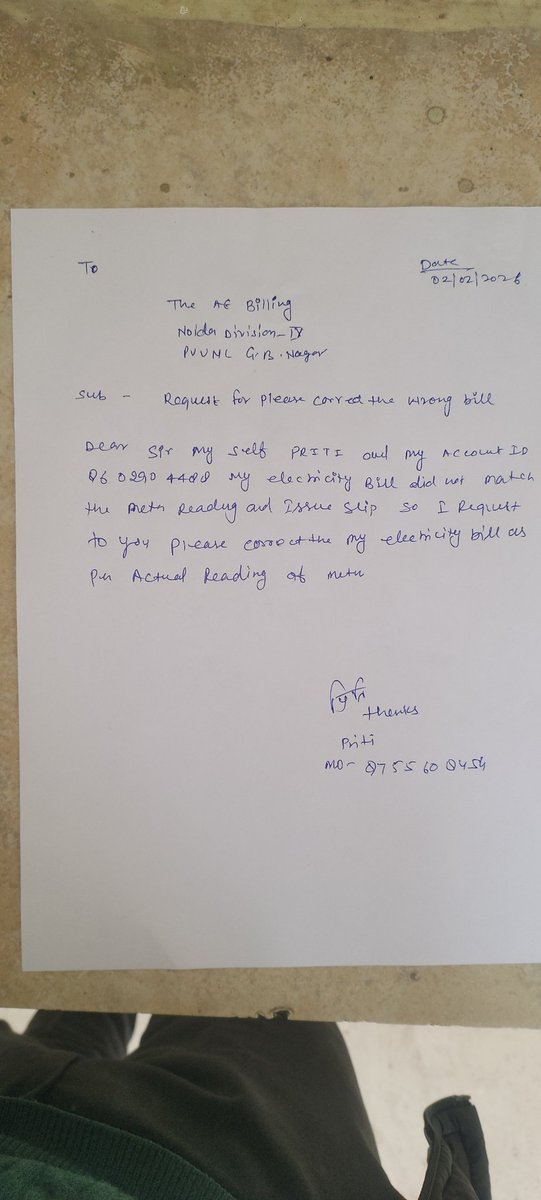 To
Date
02/02/2026
The AE Billing
Noida Division-IV
PVVNL G.B. Nagar
Sub - Request for please correct the wrong bill
Dear Sir my self PRITI and my Account ID
8602904488 my electricity Bill did not match
the metr Reading and Issue Slip so I Request
to you please correct the my electricity bill as
per Actual Reading of metr
प्रिति
thanks
Priti
MO-